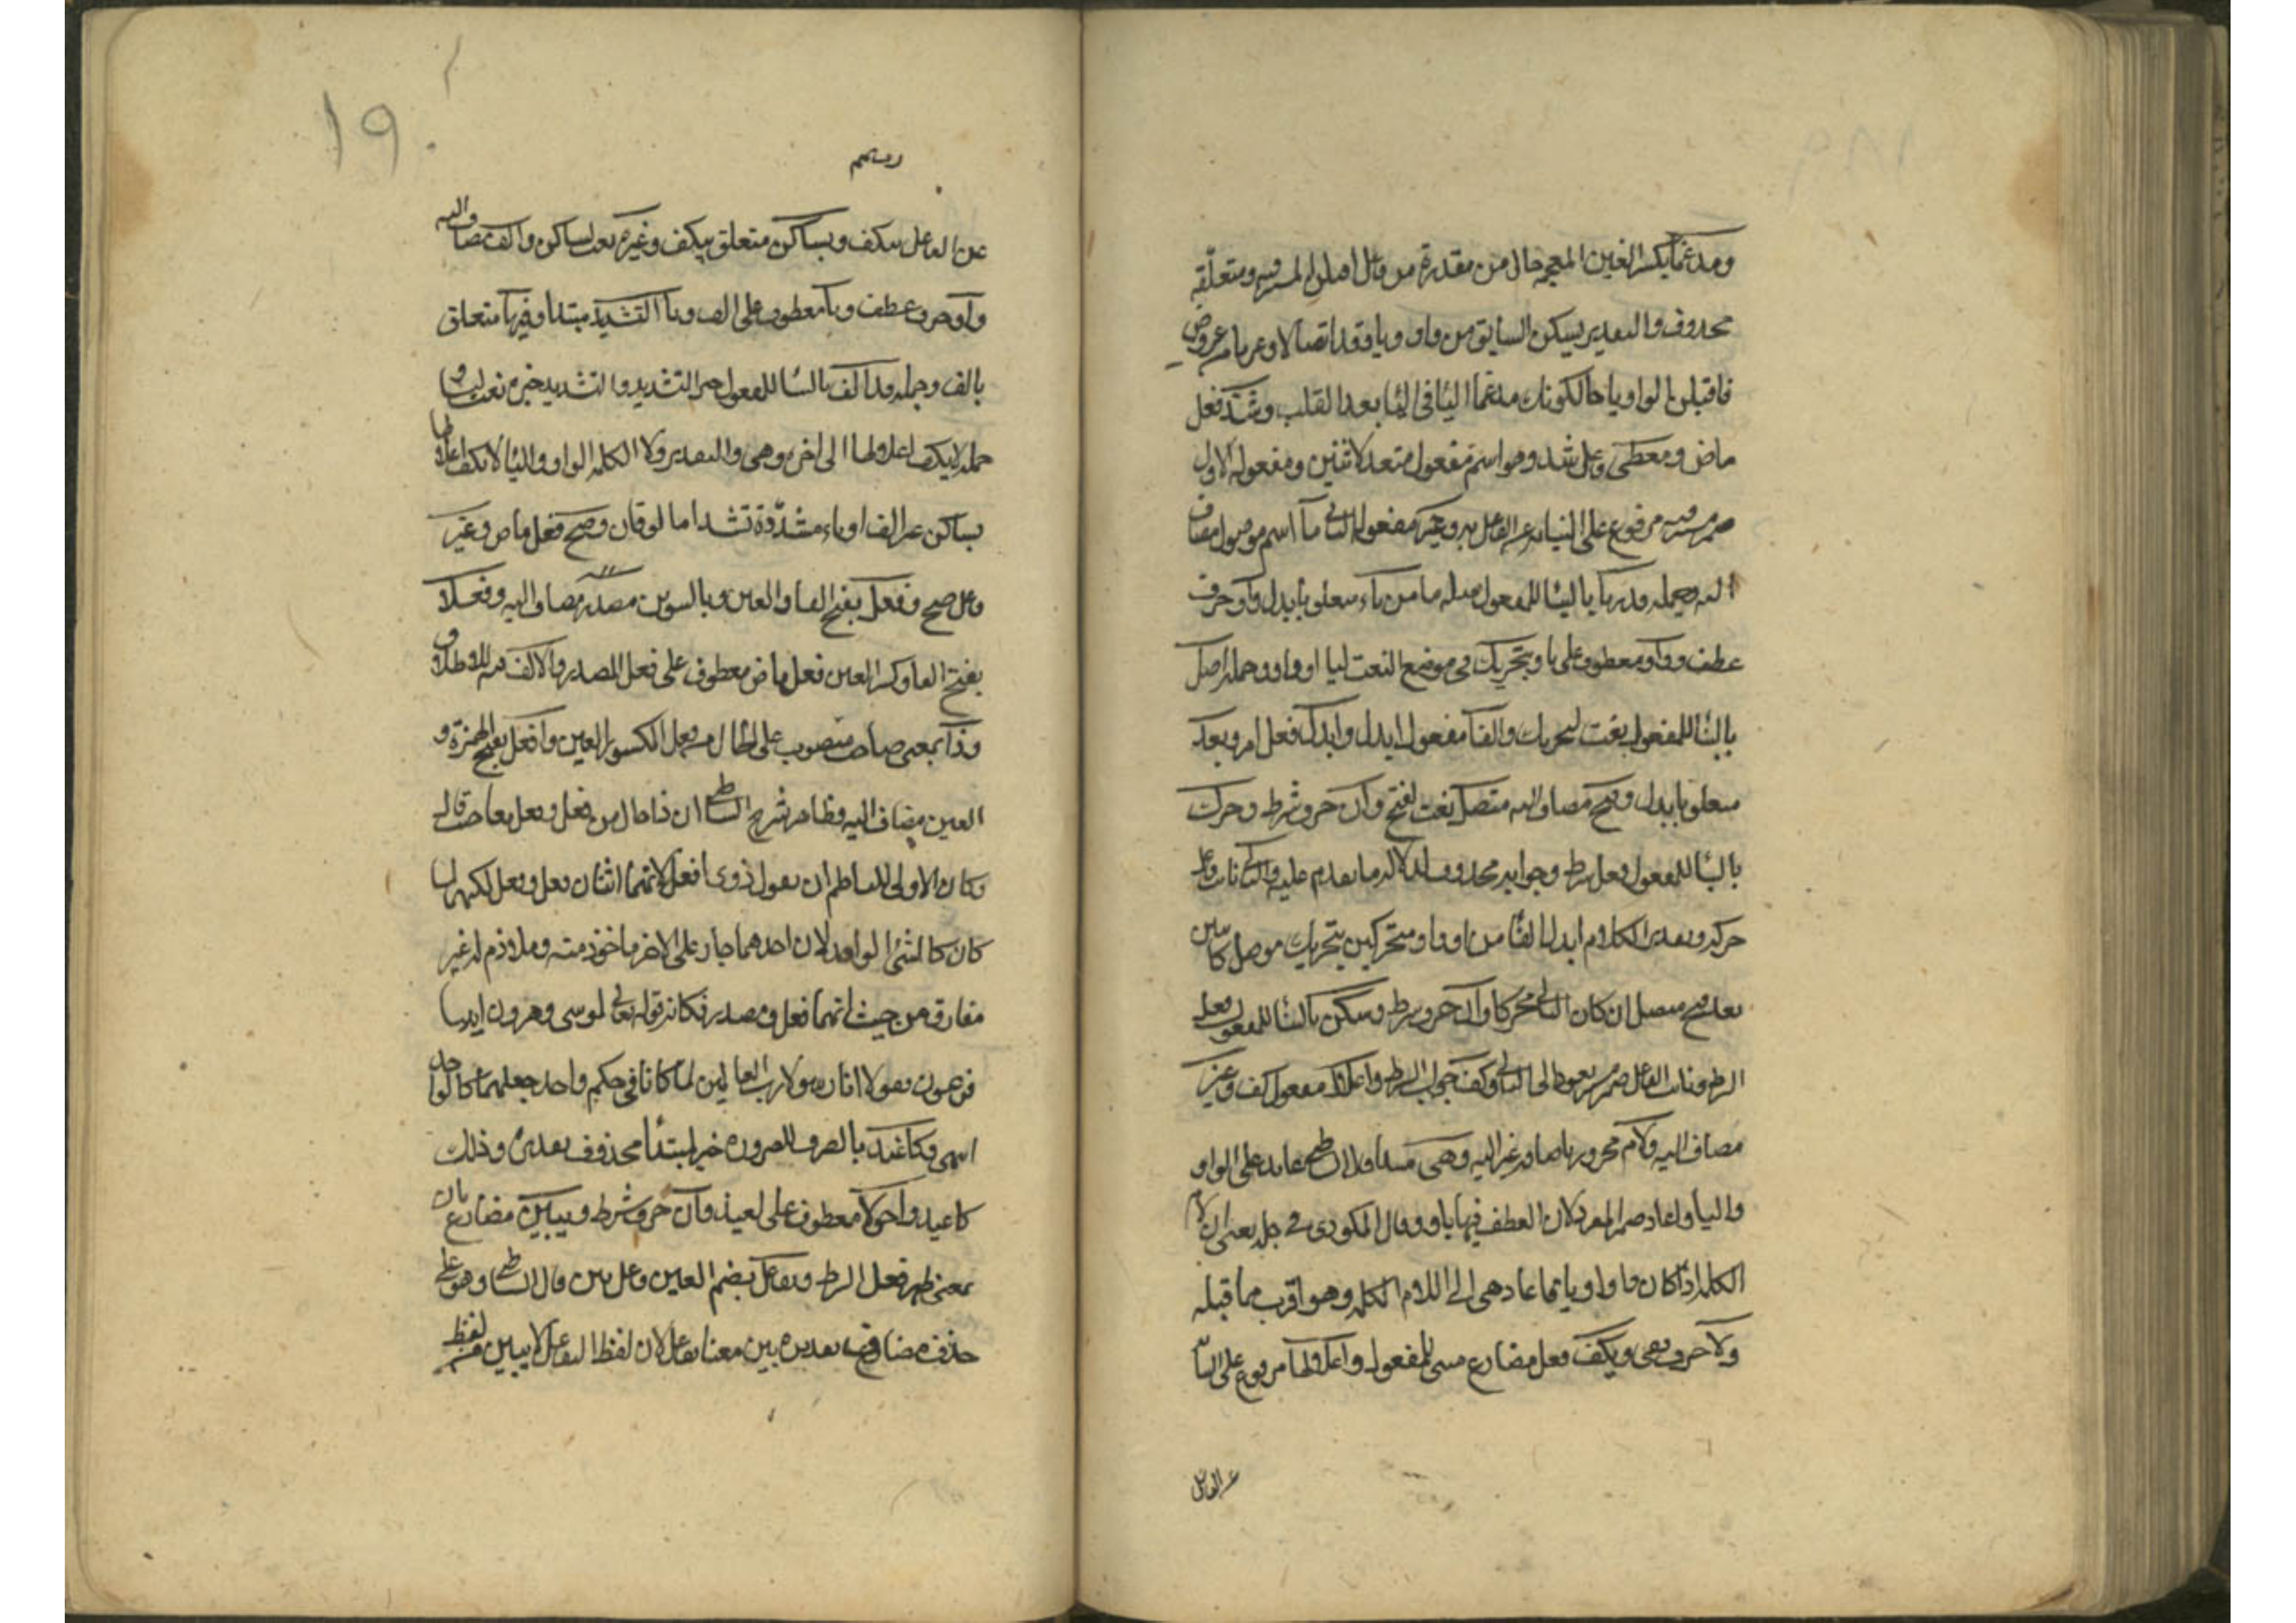 ومدغما بكسر الغين المعجمه حال من مقدرة من فاعل اقلبن المستتر فيه ومتعلقه
محذوف والتقدير يسكن السابق من واو ويا وقد اتصالا وعريا من عروض
فاقبلن الواو يا حال كونك مدغما اليا في اليا بعد القلب وشذ فعل
ماض ومعطى فاعل شذ وهو اسم مفعول متعد لاثنين ومفعوله الاول
ضمير فيه مرفوع على النيابه عن الفاعل به وغير مفعوله الثاني ما اسم موصول مضاف
اليه وجمله قد رسما بالبنا للمفعول صله ما من ياء متعلق بابدل واو حرف
عطف وواو معطوف على يا وبتحريك في موضع النعت ليا او واو وجمله اصل
بالبنا للمفعول نعت لتحريك والفا مفعول ابدل وابدل فعل امر وبعد
متعلق بابدل وفتح مضاف اليه متصل نعت لفتح وان حرف شرط وحرك
بالبنا للمفعول فعل شرط وجوابه محذوف لدلالة ما تقدم عليه والثاني نائب فاعل
حرك وتقدير الكلام ابدل الفا من او واو متحركين بتحريك موصل كاين
بعد فتح متصل ان كان الثاني محركا وان حرف شرط وسكن بالبنا للمفعول فعل
الشرط ونائب الفاعل ضمير يعود الى الثاني وكف جواب الشرط واعلال مفعول كف وغير
مضاف اليه ولام مجرور باضافه غير اليه وهي مبتدا ولان عائد على الواو
واليا واعاد ضمير المفرد لان العطف فيها باو وقال المكودي في جله يعنى ان لام
الكلمه اذا كان واو او يا فما عاد هي الى اللام الكلمه وهو اقرب مما قبله
ولا حرف نفي ويكف فعل مضارع مبنى للمفعول واعلالها مرفوع على النيا
عن الفاعل
١٩٠
عن الفاعل بيكف وبساكن متعلق بيكف وغير نعت لساكن والف مضاف اليه
واو حرف عطف ويا معطوف على الف ويا التشديد مبتدا وفيها متعلق
بالف وجمله قد الف بالبنا للمفعول خبر التشديد والتشديد خبره نعت ليا و
جمله لا يكف اعلالها الى اخره وهي والتقدير ولا الكلمه الواو واليا لا يكف اعلالها
بساكن غير الف او ياء مشددة تشد اما لوقان وصح فعل ماض وعين
فاعل صح وفعل بفتح الفا والعين وبالتنوين مصدر مضاف اليه وفعلا
بفتح الفا وكسر العين فعل ماض معطوف على فعل المصدر والالف فيه للاطلاق
وذا بمعنى صاحب منصوب على الحال من فعل المكسور العين وافعل بفتح الهمزة و
العين مضاف اليه وظاهر شرح الشاطبي ان ذا حال من فعل وفعل معا حيث قال
وكان الاولى للناظم ان يقول ذوي افعل لانهما اثنان فعل وفعل لكنهما
كان كالشئ الواحد لان احدهما جار على الاخر ماخوذ منه وملازم له غير
مفارق من حيث انهما فعل ومصدر فكانه قوله تعالى لموسى وهرون ايتيا
فرعون فقولا انا رسول رب العالمين لما كانا في حكم واحد جعلهما كالواحد
انتهى وكاغيد بالصرف للضروره خبر لمبتدا محذوف تقديره وذلك
كاغيد واحولا معطوف على اغيد وان حرف شرط ويبين مضارع بان
بمعنى ظهر فعل الشرط وتفاعل بضم العين فاعل يبن قال الشاطبي وهو على
حذف مضاف تقديره يبن معنا تفاعل لان لفظ التفاعل لا يبين من لفظ